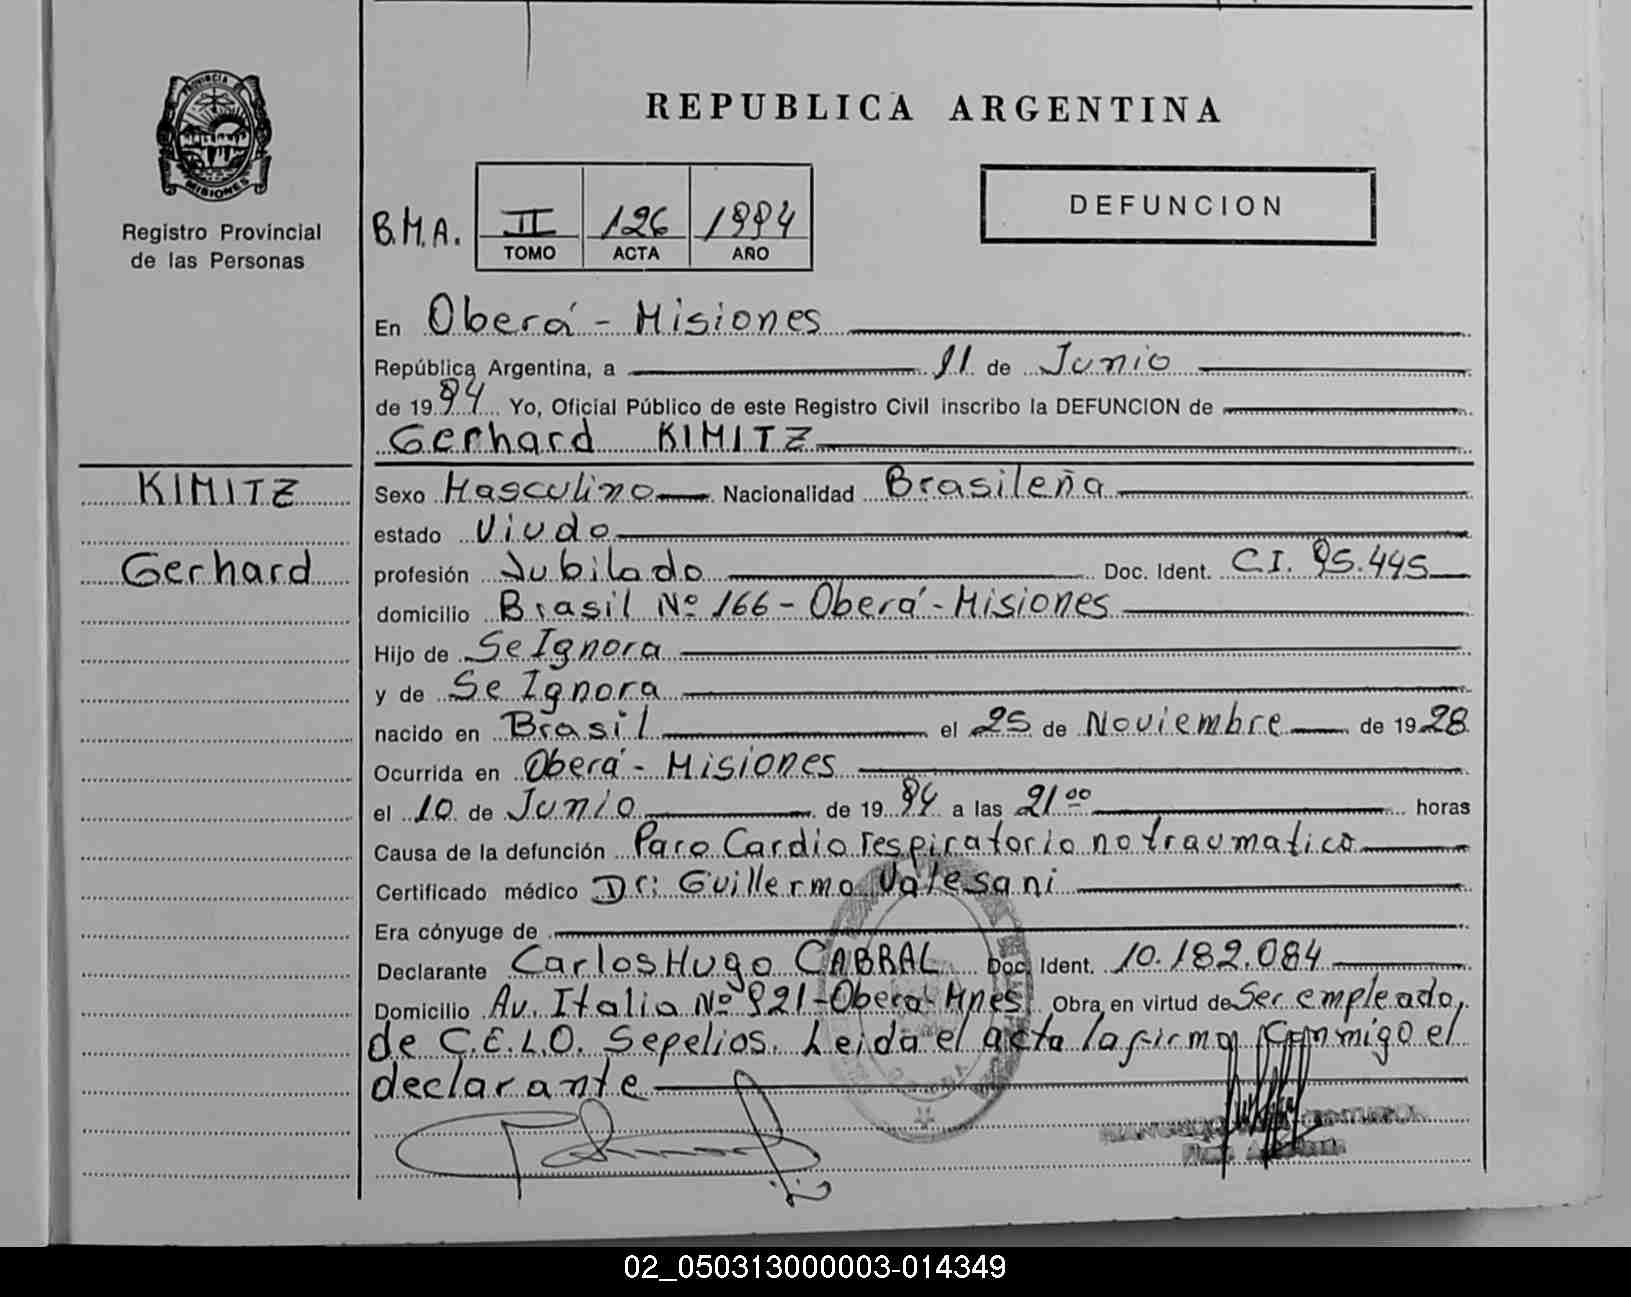 REPUBLICA ARGENTINA
PROVINCIA DE
MISIONES
Registro Provincial
de las Personas
B.M.A.
II 126 1994
TOMO ACTA AÑO
DEFUNCION
En Oberá - Misiones
República Argentina, a 11 de Junio
de 1994 Yo, Oficial Público de este Registro Civil inscribo la DEFUNCION de
Gerhard KIMITZ
KIMITZ
Gerhard
Sexo Masculino Nacionalidad Brasileña
estado Viudo
profesión Jubilado Doc. Ident. C.I. 95.445
domicilio Brasil Nº 166 - Oberá - Misiones
Hijo de Se Ignora
y de Se Ignora
nacido en Brasil el 25 de Noviembre de 1928
Ocurrida en Oberá - Misiones
el 10 de Junio de 1994 a las 21 00 horas
Causa de la defunción Paro Cardio respiratorio no traumatico
Certificado médico Dr: Guillermo Valesani
Era cónyuge de
Declarante Carlos Hugo CABRAL Doc. Ident. 10.182.084
Domicilio Av. Italia Nº 921 - Oberá - Mnes Obra en virtud de Ser empleado,
de C.E.L.O. Sepelios. Leida el acta la firma Conmigo el
declarante
02_050313000003-014349